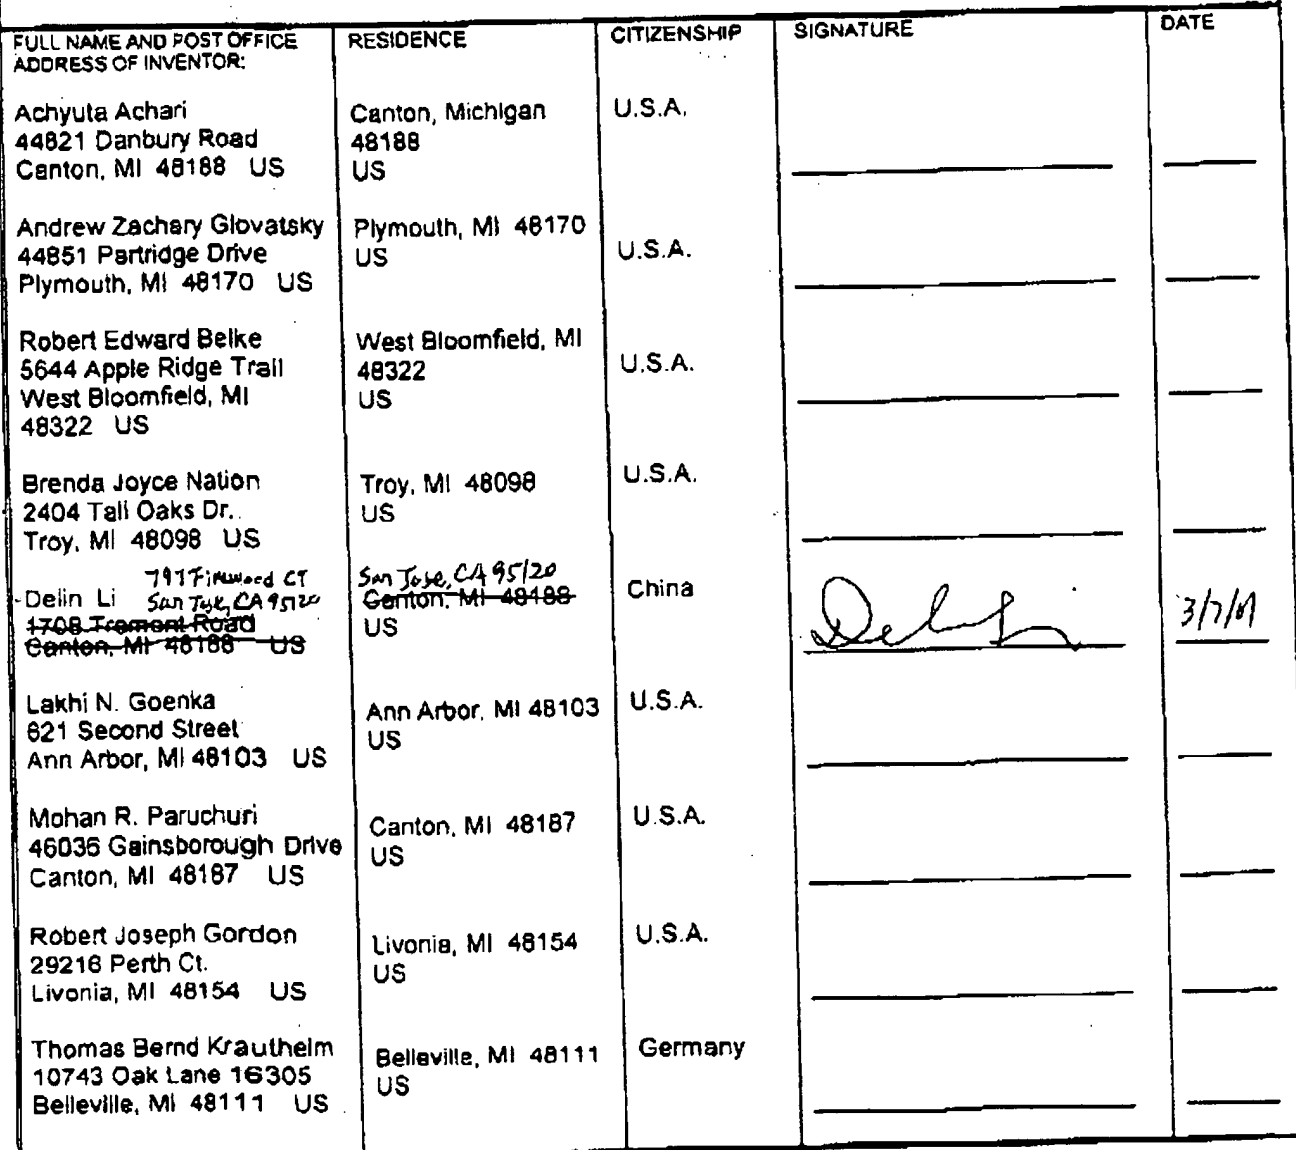 FULL NAME AND POST OFFICE
ADDRESS OF INVENTOR:
RESIDENCE
CITIZENSHIP
SIGNATURE
DATE
Achyuta Achari
44821 Danbury Road
Canton, MI 48188 US
Canton, Michigan
48188
US
U.S.A.
Andrew Zachary Glovatsky
44851 Partridge Drive
Plymouth, MI 48170 US
Plymouth, MI 48170
US
U.S.A.
Robert Edward Belke
5644 Apple Ridge Trail
West Bloomfield, MI
48322 US
West Bloomfield, MI
48322
US
U.S.A.
Brenda Joyce Nation
2404 Tall Oaks Dr.
Troy, MI 48098 US
Troy, MI 48098
US
U.S.A.
797 Firewood CT
Delin Li San Jose, CA 95120
1708 Tremont Road
Canton, MI 48188 US
San Jose, CA 95120
Canton, MI 48188
US
China
3/7/01
Lakhi N. Goenka
821 Second Street
Ann Arbor, MI 48103 US
Ann Arbor, MI 48103
US
U.S.A.
Mohan R. Paruchuri
46036 Gainsborough Drive
Canton, MI 48187 US
Canton, MI 48187
US
U.S.A.
Robert Joseph Gordon
29216 Perth Ct.
Livonia, MI 48154 US
Livonia, MI 48154
US
U.S.A.
Thomas Bernd Krautheim
10743 Oak Lane 16305
Belleville, MI 48111 US
Belleville, MI 48111
US
Germany